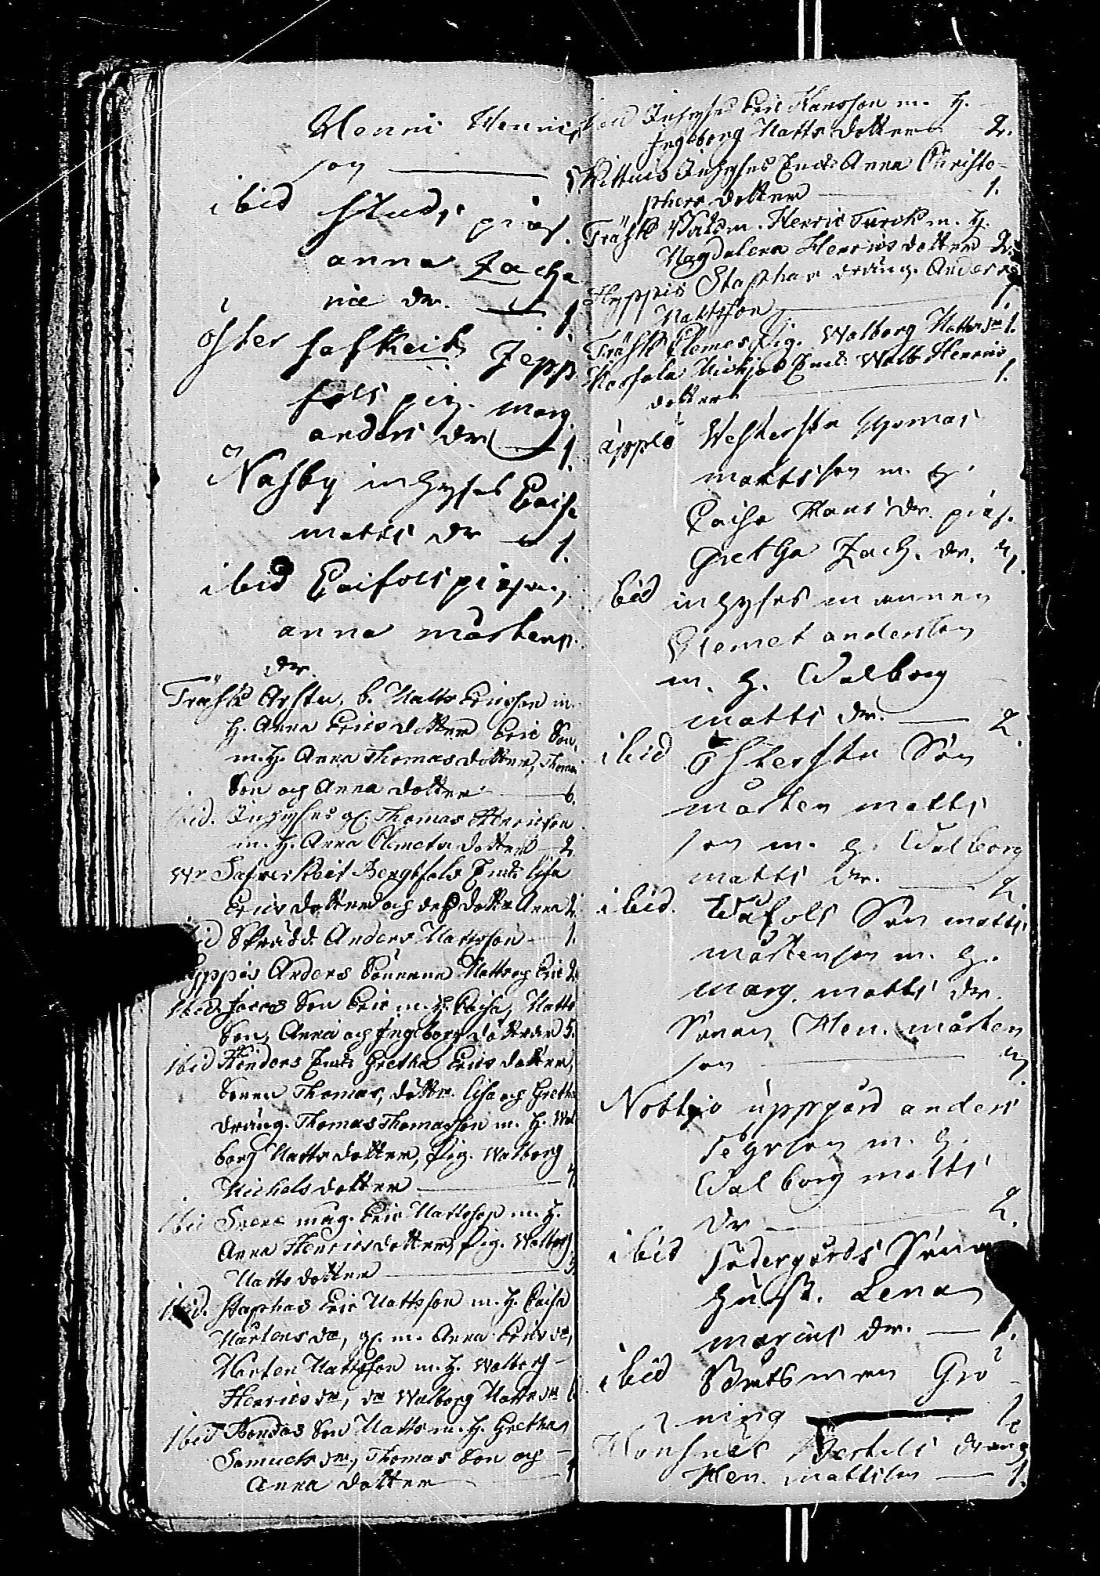 Henric Henrics
son — 1
ibid Studs pig.
anna Zacha
riæ dr. — 1
öster Safskeit Jepp
fols pig. marg.
anders dr — 1.
Nasby inhyses Caisa
matts dr — 1.
ibid Caifols pigan,
anna mårtens
dr
Träsk Arstu. b. Matts Ericsson m.
h. Anna Erics dotter Eric Son,
m. h. Anna Thomas dotter, Thomas
Son og Anna dotter — 6.
ibid. Inhyses gl. Thomas Henricson
m. h. Anna Clmets dotter — 2.
Wr. Safverskeit Bengtfols Enk. Lisa
Erics dotter og des dotter Anna 2.
ibid Skrädd. Anders Mattsson — 1.
Hyppis Anders Sönerne Matts og Eric 2.
ibid Jacos Son Eric m. h. Caisa, Matts
Son, Anna og Ingeborg döttrar 5.
ibid Hinders Enk. Gretha Erics dotter,
Sonen Thomas, döttr. Lisa og Gretha
dräng. Thomas Thomasson m. h. Wal
borg Matts dotter, Pig. Walborg
Michels dotter —
ibid mag. Eric Mattsson m. h.
Anna Henrics dotter, Pig. Walborg
Matts dotter —
ibid. Staphas Eric Mattsson m. h. Caisa
Mårtens dr, gl. m. Anna Erics dr,
Mårten Mattsson m. h. Walborg
Henrics dr, dr Walborg Matts dr 6
ibid Bondas Son Matts m. h. Gretha
Samuels dr, Thomas Son og
Anna dotter —
ibid Inhyses Eric Hansson m. h.
Ingeborg Matts dotter — 2.
Inhyses Enk. Anna Christo-
phers dotter — 1.
Träsk Soldm. Henric Turck m. h.
Magdalena Henrics dotter 2.
Hyppis Staphas dräng. Anders
Mattsson — 1.
Träsk Clemes Pig. Walborg Matts dr 1.
Enk. Walb. Henrics
dotter — 1.
äpplö Westerstu Thomas
mattsson m. h.
Caisa Hans dr. pig.
Gretha Zach. dr. 3.
ibid inhyses mannen
Clemet andersson
m. h. Walborg
matts dr. — 2.
ibid Österstu Son
mårten matts
son m. h. Walborg
matts dr. — 2.
ibid. Wäfols Son matts
mårtenson m. h.
marg. matts dr.
Sonen Hen. mårten
son — 3.
Nottjo uppgård anders
m. h.
Walborg matts
dr — 2.
ibid södergårds
hust. Lena
marcus dr. — 1.
ibid Båtsman Grö
ning — 1.
Hansnes Bertils dräng
Hen. mattsson — 1.